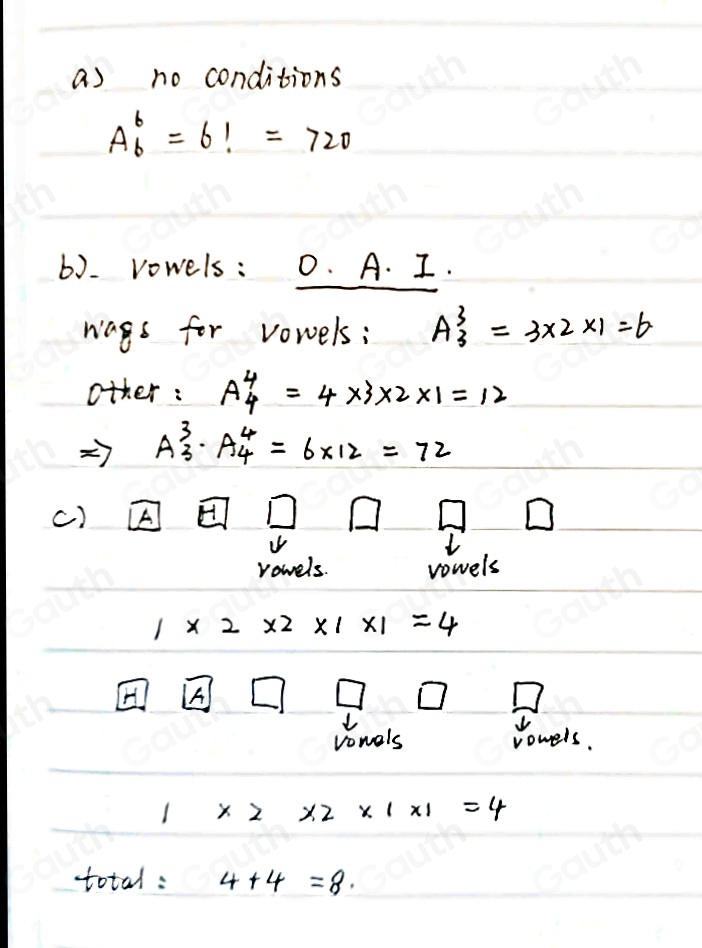 a) no conditions
A₆⁶ = 6! = 720
b). vowels: O. A. I.
ways for vowels: A₃³ = 3×2×1 = 6
other: A₄⁴ = 4×3×2×1 = 12
=> A₃³ · A₄⁴ = 6×12 = 72
c) A H
vowels. vowels
1 × 2 × 2 × 1 × 1 = 4
H A
vowels vowels.
1 × 2 × 2 × 1 × 1 = 4
total: 4+4 = 8.